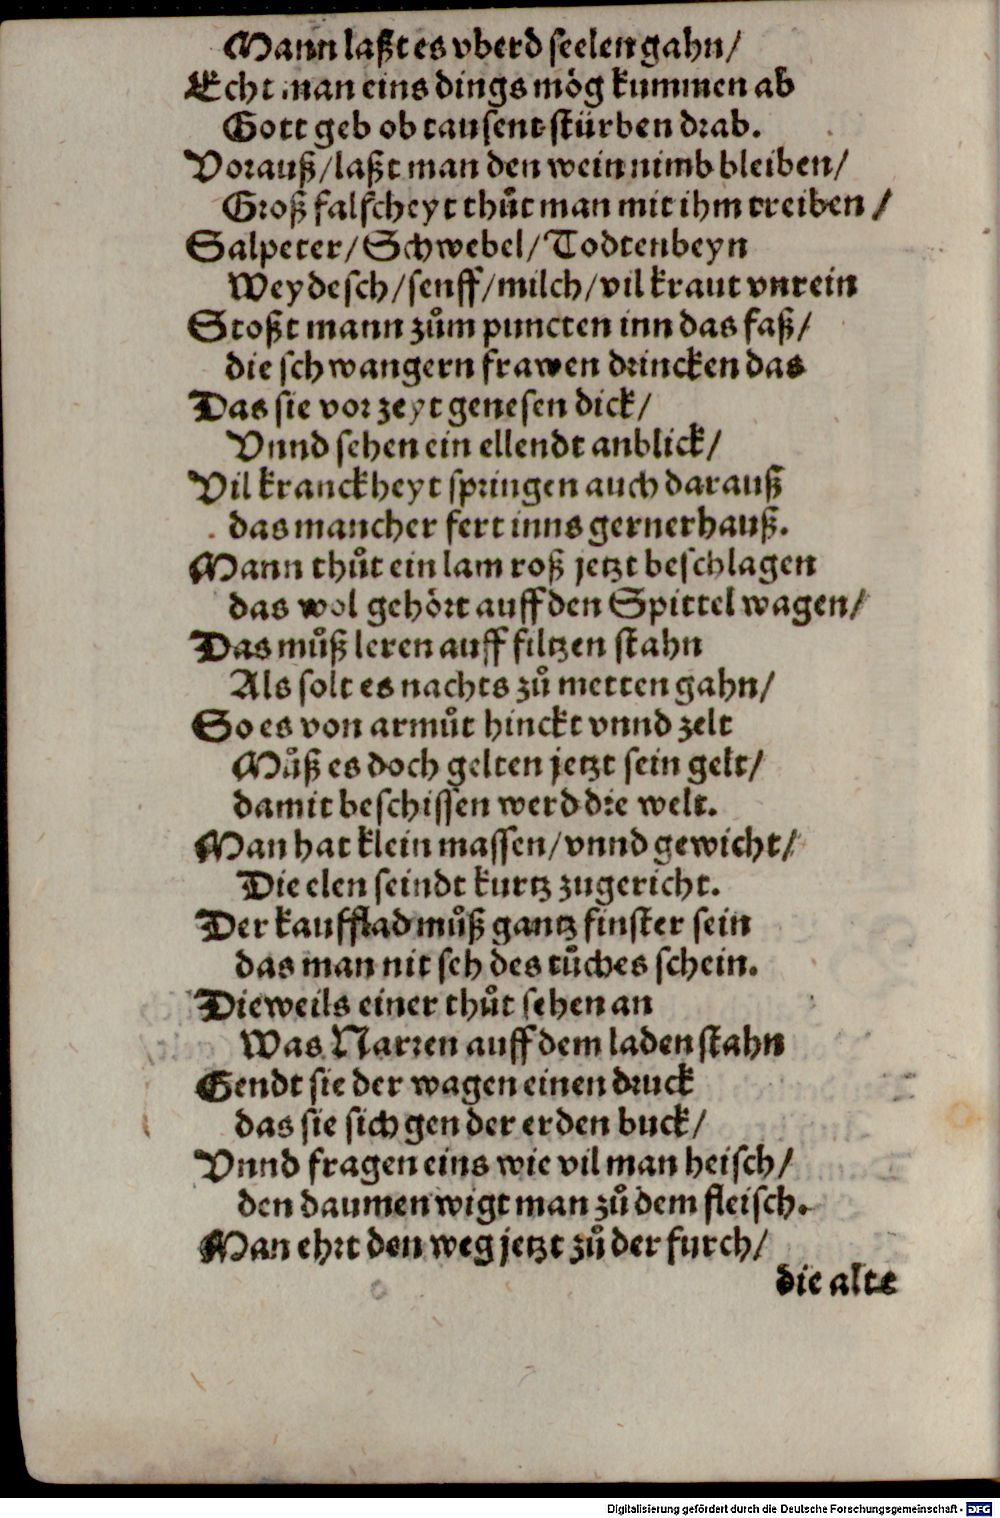 Mann laßt es vberd seelen gahn/
Echt man eins dings mög kummen ab
Gott geb ob tausent stürben drab.
Vorauß/laßt man den wein nimb bleiben/
Groß falscheyt thůt man mit ihm treiben/
Salpeter/Schwebel/Todtenbeyn
Weydesch/senff/milch/vil kraut vnrein
Stoßt mann zům puncten inn das faß/
die schwangern frawen drincken das
Das sie vor zeyt genesen dick/
Vnnd sehen ein ellendt anblick/
Vil kranckheyt springen auch darauß
das mancher fert inns gernerhauß.
Mann thůt ein lam roß jetzt beschlagen
das wol gehört auff den Spittel wagen/
Das můß leren auff filtzen stahn
Als solt es nachts zů metten gahn/
So es von armůt hinckt vnnd zelt
Můß es doch gelten jetzt sein gelt/
damit beschissen werd die welt.
Man hat klein massen/vnnd gewicht/
Die elen seindt kurtz zugericht.
Der kaufflad můß gantz finster sein
das man nit seh des tůches schein.
Dieweils einer thůt sehen an
Was Narren auff dem laden stahn
Gendt sie der wagen einen druck
das sie sich gen der erden buck/
Vnnd fragen eins wie vil man heisch/
den daumen wigt man zů dem fleisch.
Man ehrt den weg jetzt zů der furch/
die alte
Digitalisierung gefördert durch die Deutsche Forschungsgemeinschaft - DFG